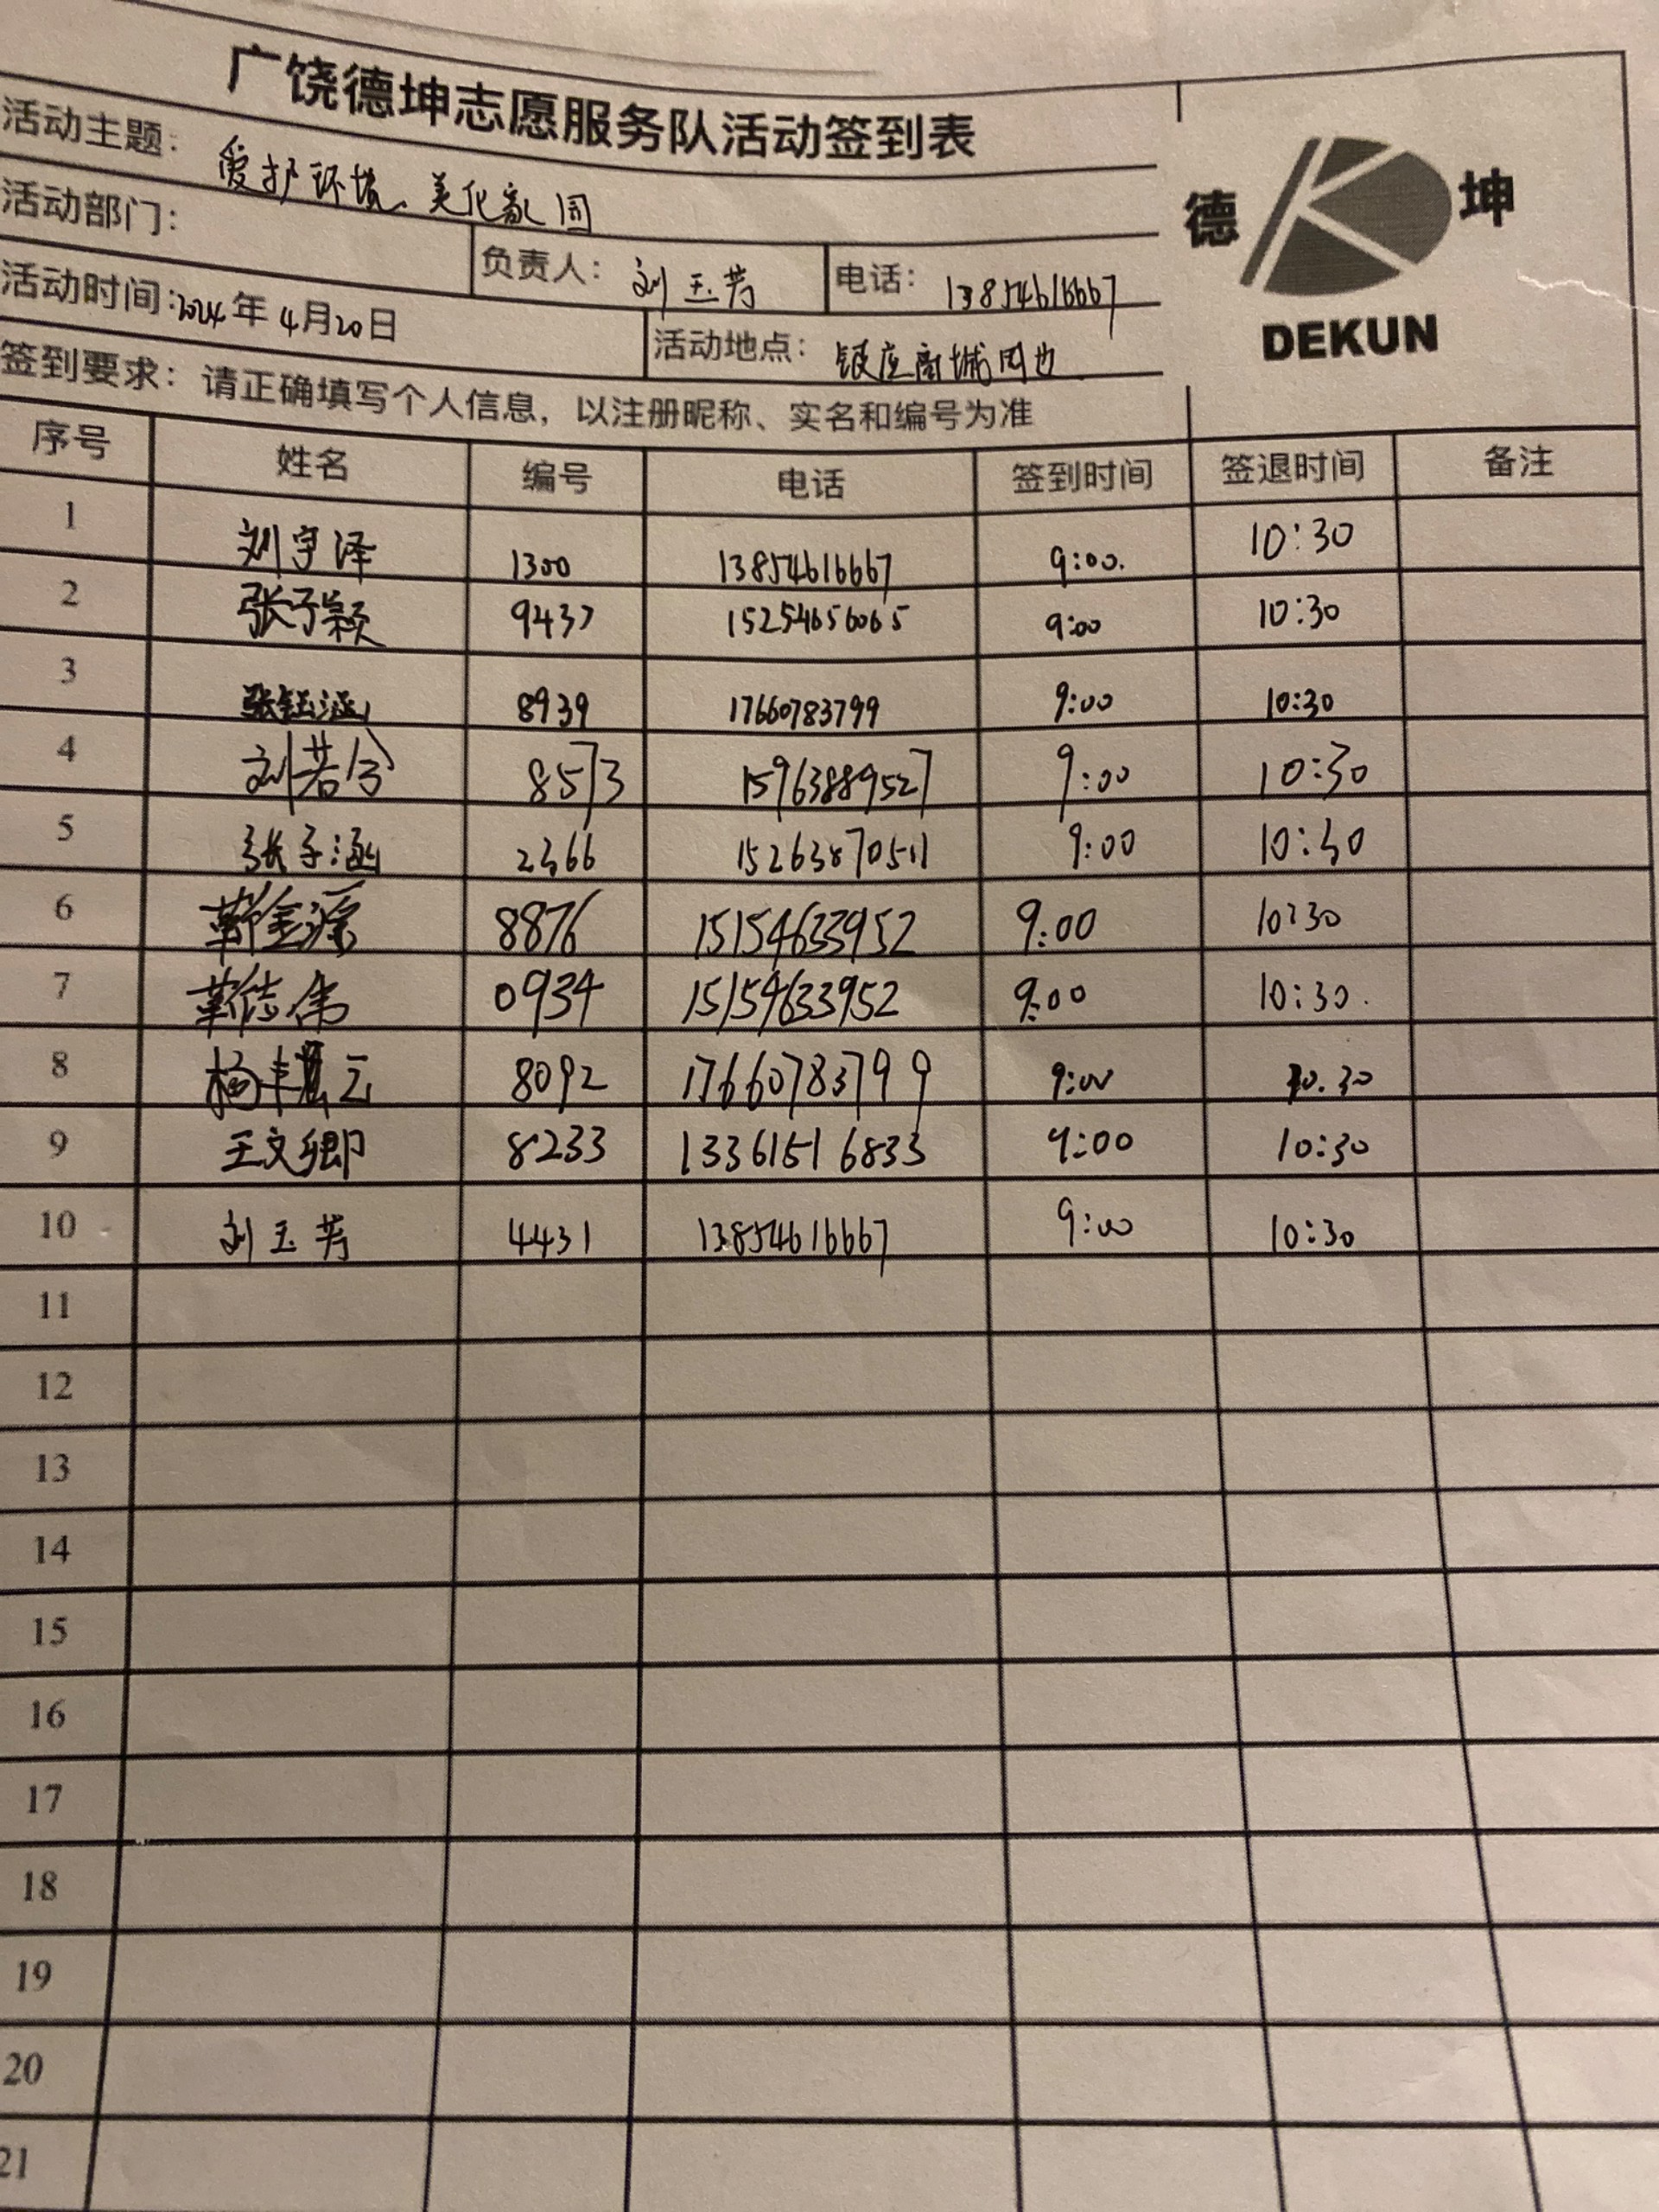 广饶德坤志愿服务队活动签到表
活动主题：爱护环境、美化家园
德 坤
DEKUN
活动部门： 负责人：刘玉芳 电话：13854616667
活动时间：2024年4月20日 活动地点：银座商城周边
签到要求：请正确填写个人信息，以注册昵称、实名和编号为准
序号 姓名 编号 电话 签到时间 签退时间 备注
1 刘宇泽 1300 13854616667 9:00. 10:30
2 张子颖 9437 15254656065 9:00 10:30
3 张钰涵 8939 17660783799 9:00 10:30
4 刘若兮 8573 15963889527 9:00 10:30
5 张子涵 2366 15263870511 9:00 10:30
6 靳金源 8876 15154633952 9:00 10:30
7 靳传伟 0934 15154633952 9:00 10:30.
8 杨 云 8092 17660783799 9:00 10.30
9 王文卿 8233 13361516833 9:00 10:30
10 刘玉芳 4431 13854616667 9:00 10:30
11
12
13
14
15
16
17
18
19
20
21